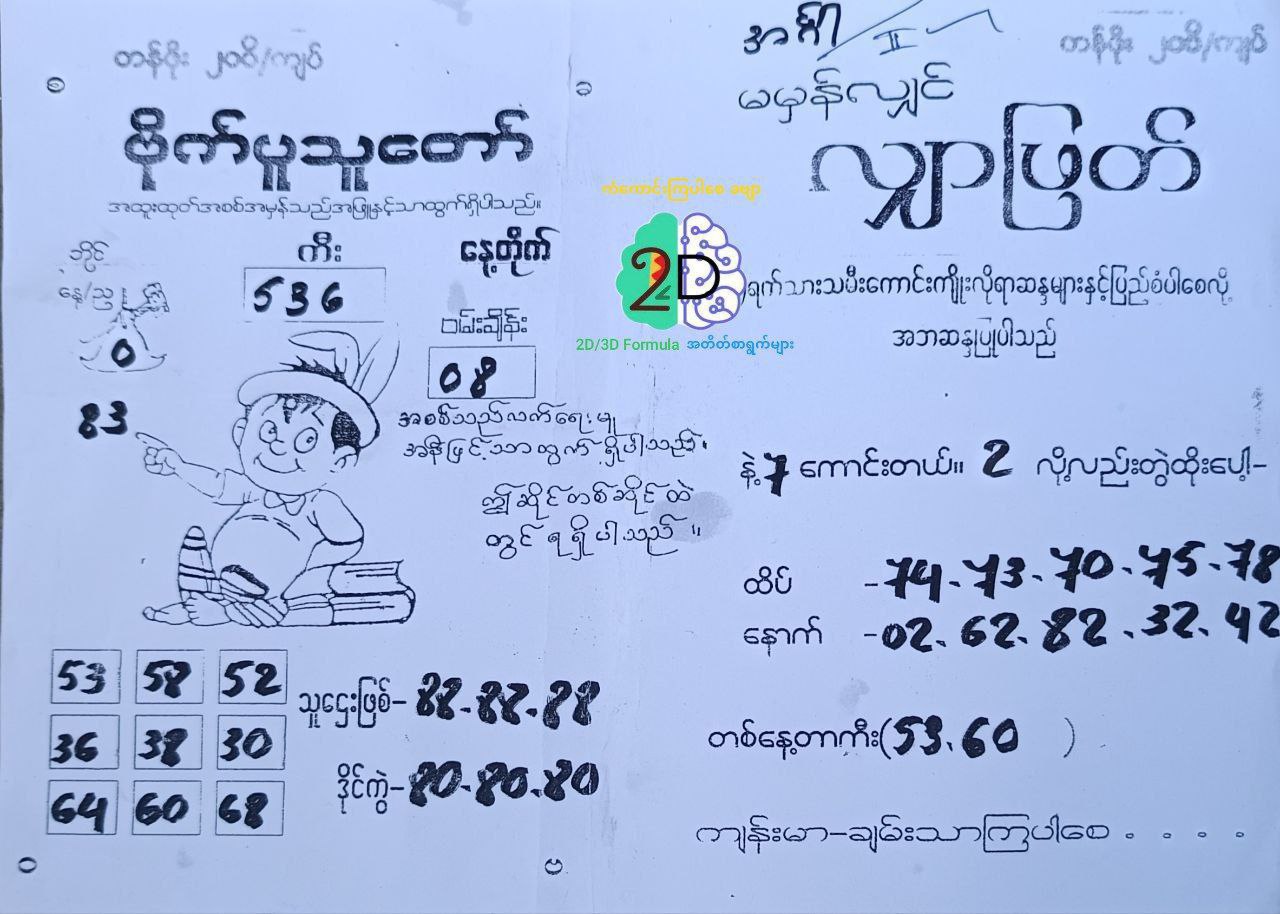 တန်ဖိုး ၂၀၀ိ/ကျပ်
ဗိုက်ပူသူတော်
အထူးထုတ်အစစ်အမှန်သည်အဖြူနှင့်သာထွက်ရှိပါသည်။
ဘိုင်
နေ့/ည
ကီး
နေ့တိုက်
0
536
ဝမ်းချိန်း
08
83
အစစ်သည်လက်ရေးမူ
အနီဖြင့်သာထွက်ရှိပါသည်။
ဤဆိုင်တစ်ဆိုင်ထဲ
တွင်ရရှိပါသည်။
53 58 52
36 38 30
64 60 68
သူဌေးဖြစ်- 88.88.88
ဒိုင်ကွဲ-80.80.80
အင်္ဂါ II
တန်ဖိုး ၂၀၀ိ/ကျပ်
မမှန်လျှင်
လျှာဖြတ်
ကံကောင်းကြပါစေ ခဗျာ
2D
2D/3D Formula အတိတ်စာရွက်များ
ရက်သားသမီးကောင်းကျိုးလိုရာဆန္ဒများနှင့်ပြည့်စုံပါစေလို့
အဘဆန္ဒပြုပါသည်
နဲ့ 7 ကောင်းတယ်။ 2 လို့လည်းတွဲထိုးပေါ့-
ထိပ် -74.73.70.75.78
နောက် -02.62.82.32.42
တစ်နေ့တာကီး(53.60 )
ကျန်းမာ-ချမ်းသာကြပါစေ . . . .